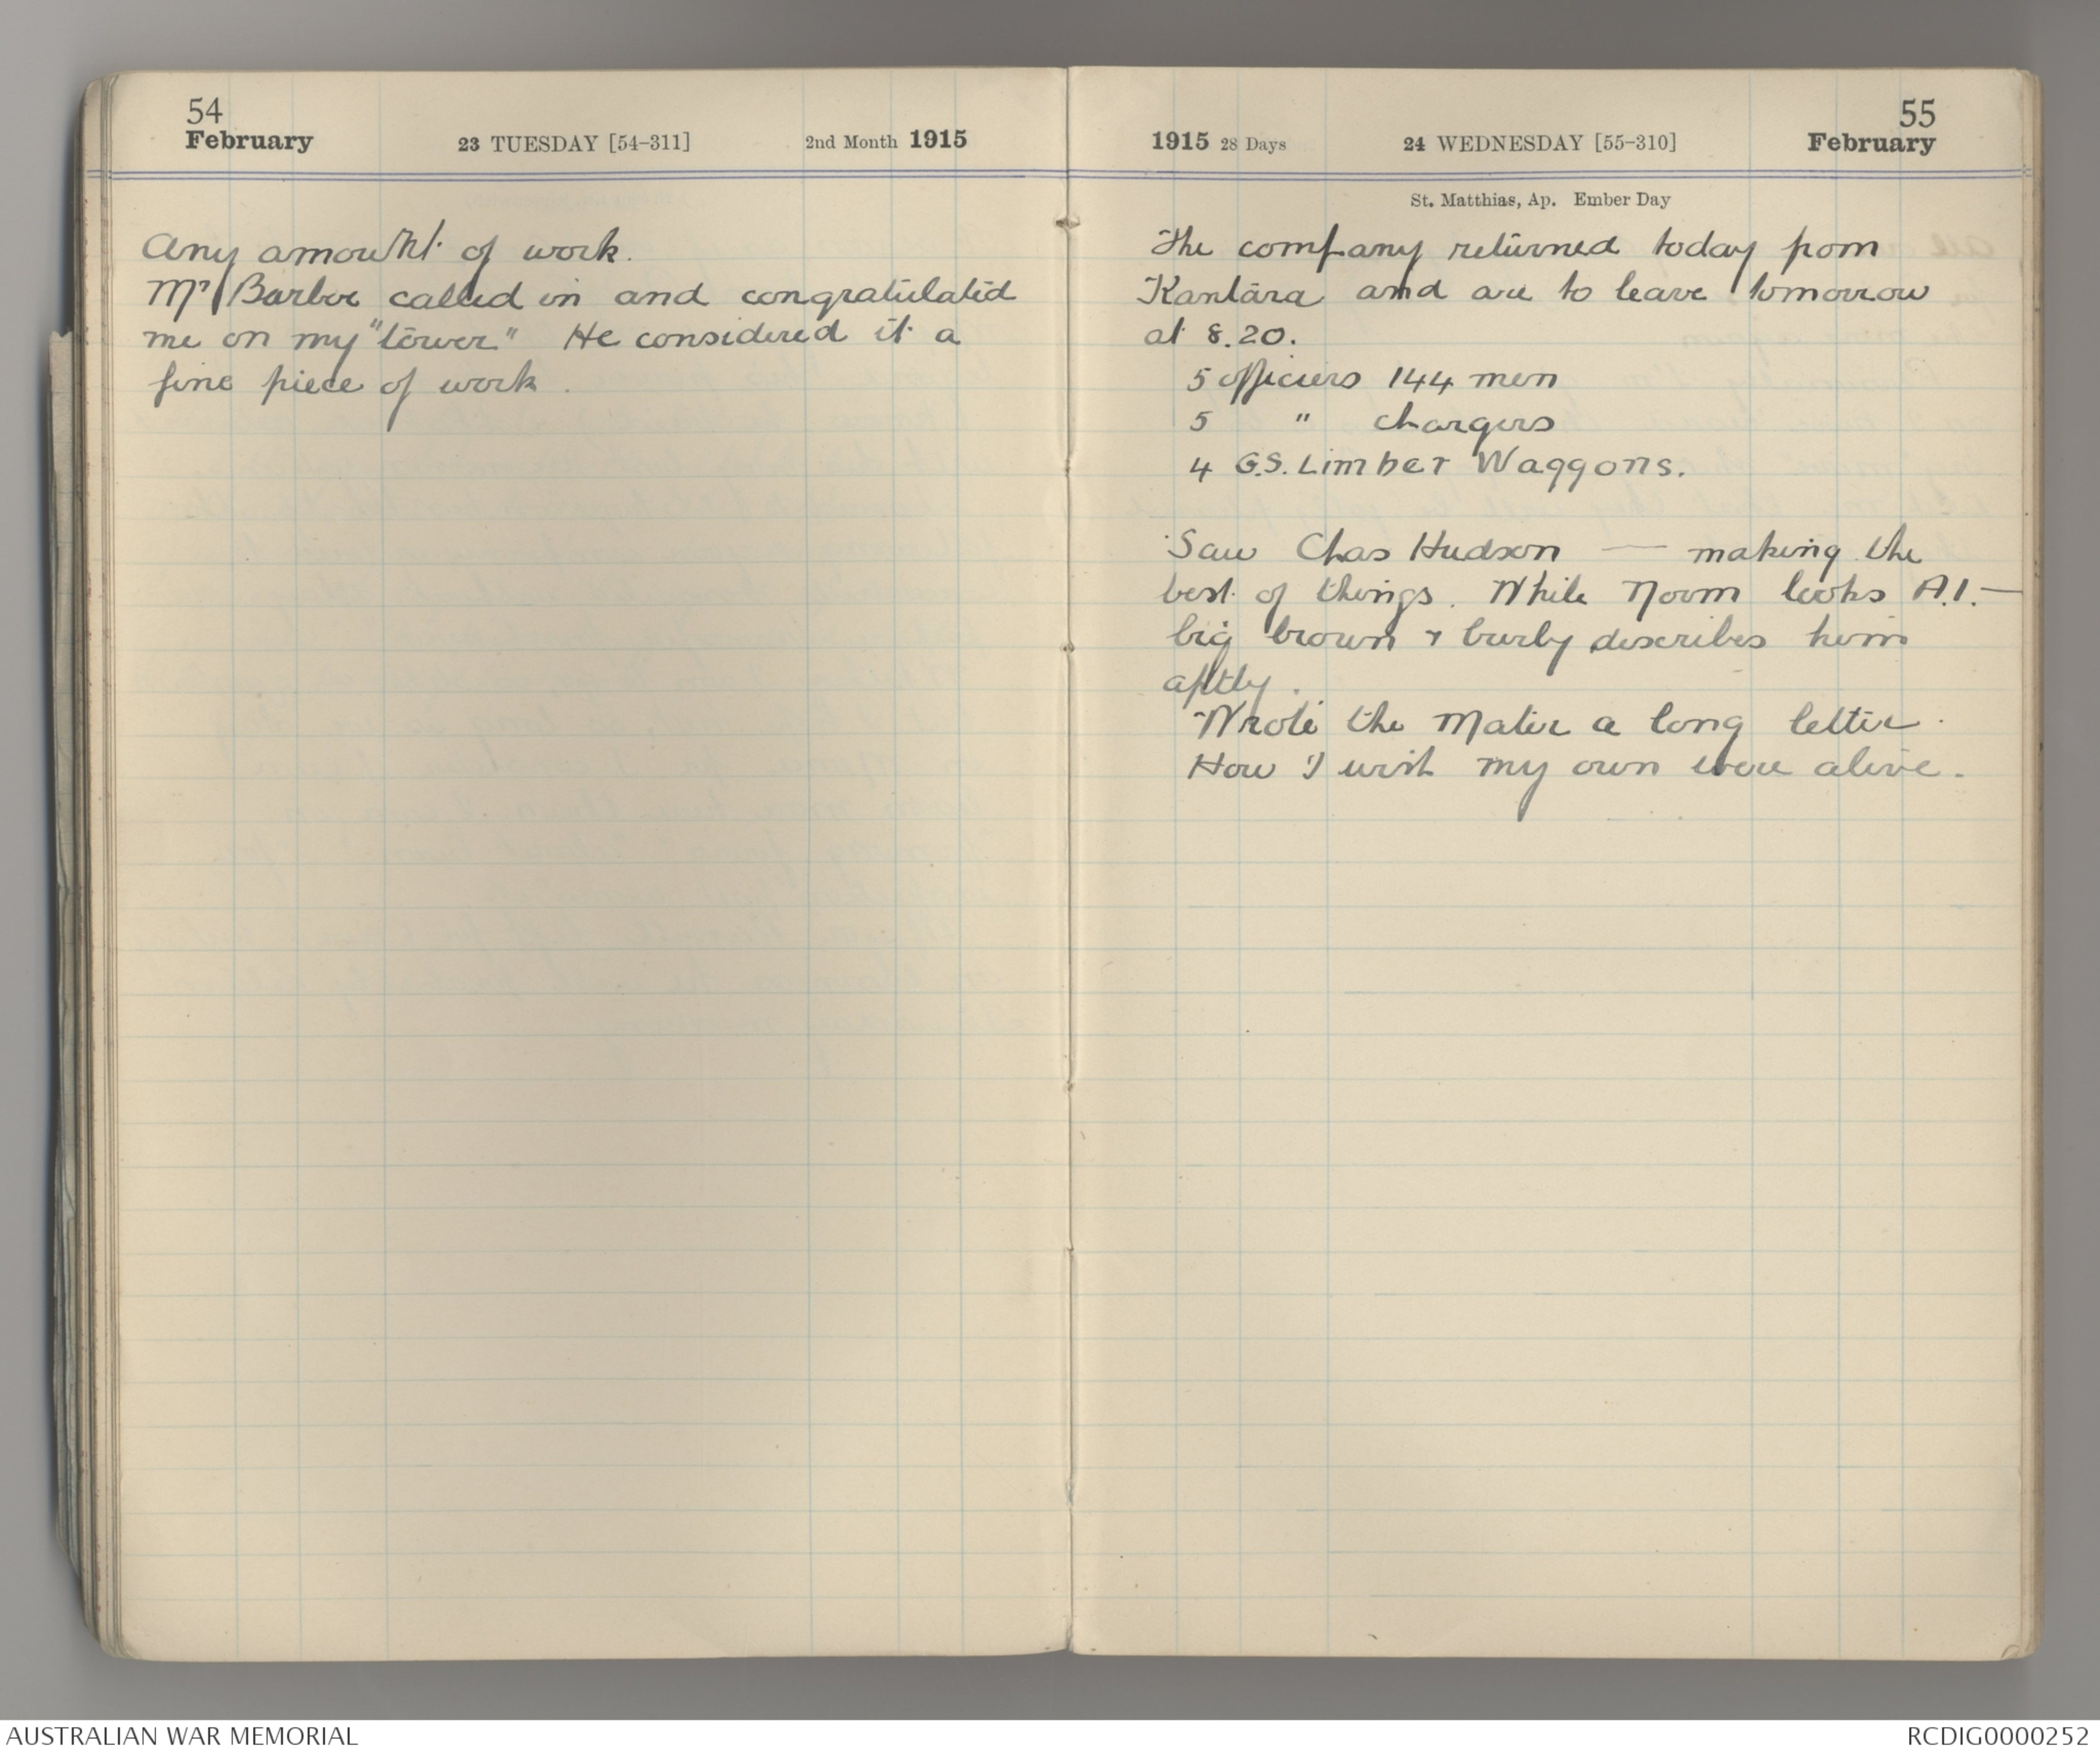 54
February 23 TUESDAY [54-311] 2nd Month 1915
Any amount of work.
Mr Barber called in and congratulated
me on my "tower" He considered it a
fine piece of work.
55
1915 28 Days 24 WEDNESDAY [55-310] February
St. Matthias, Ap. Ember Day
The company returned today from
Kantara and are to leave tomorrow
at 8.20.
5 officers 144 men
5 " chargers
4 G.S. Limber Waggons.
Saw Chas Hudson — making the
best of things. While Norm looks A.1. —
big brown & burly describes him
aptly.
Wrote the Mater a long letter.
How I wish my own were alive.
AUSTRALIAN WAR MEMORIAL
RCDIG0000252